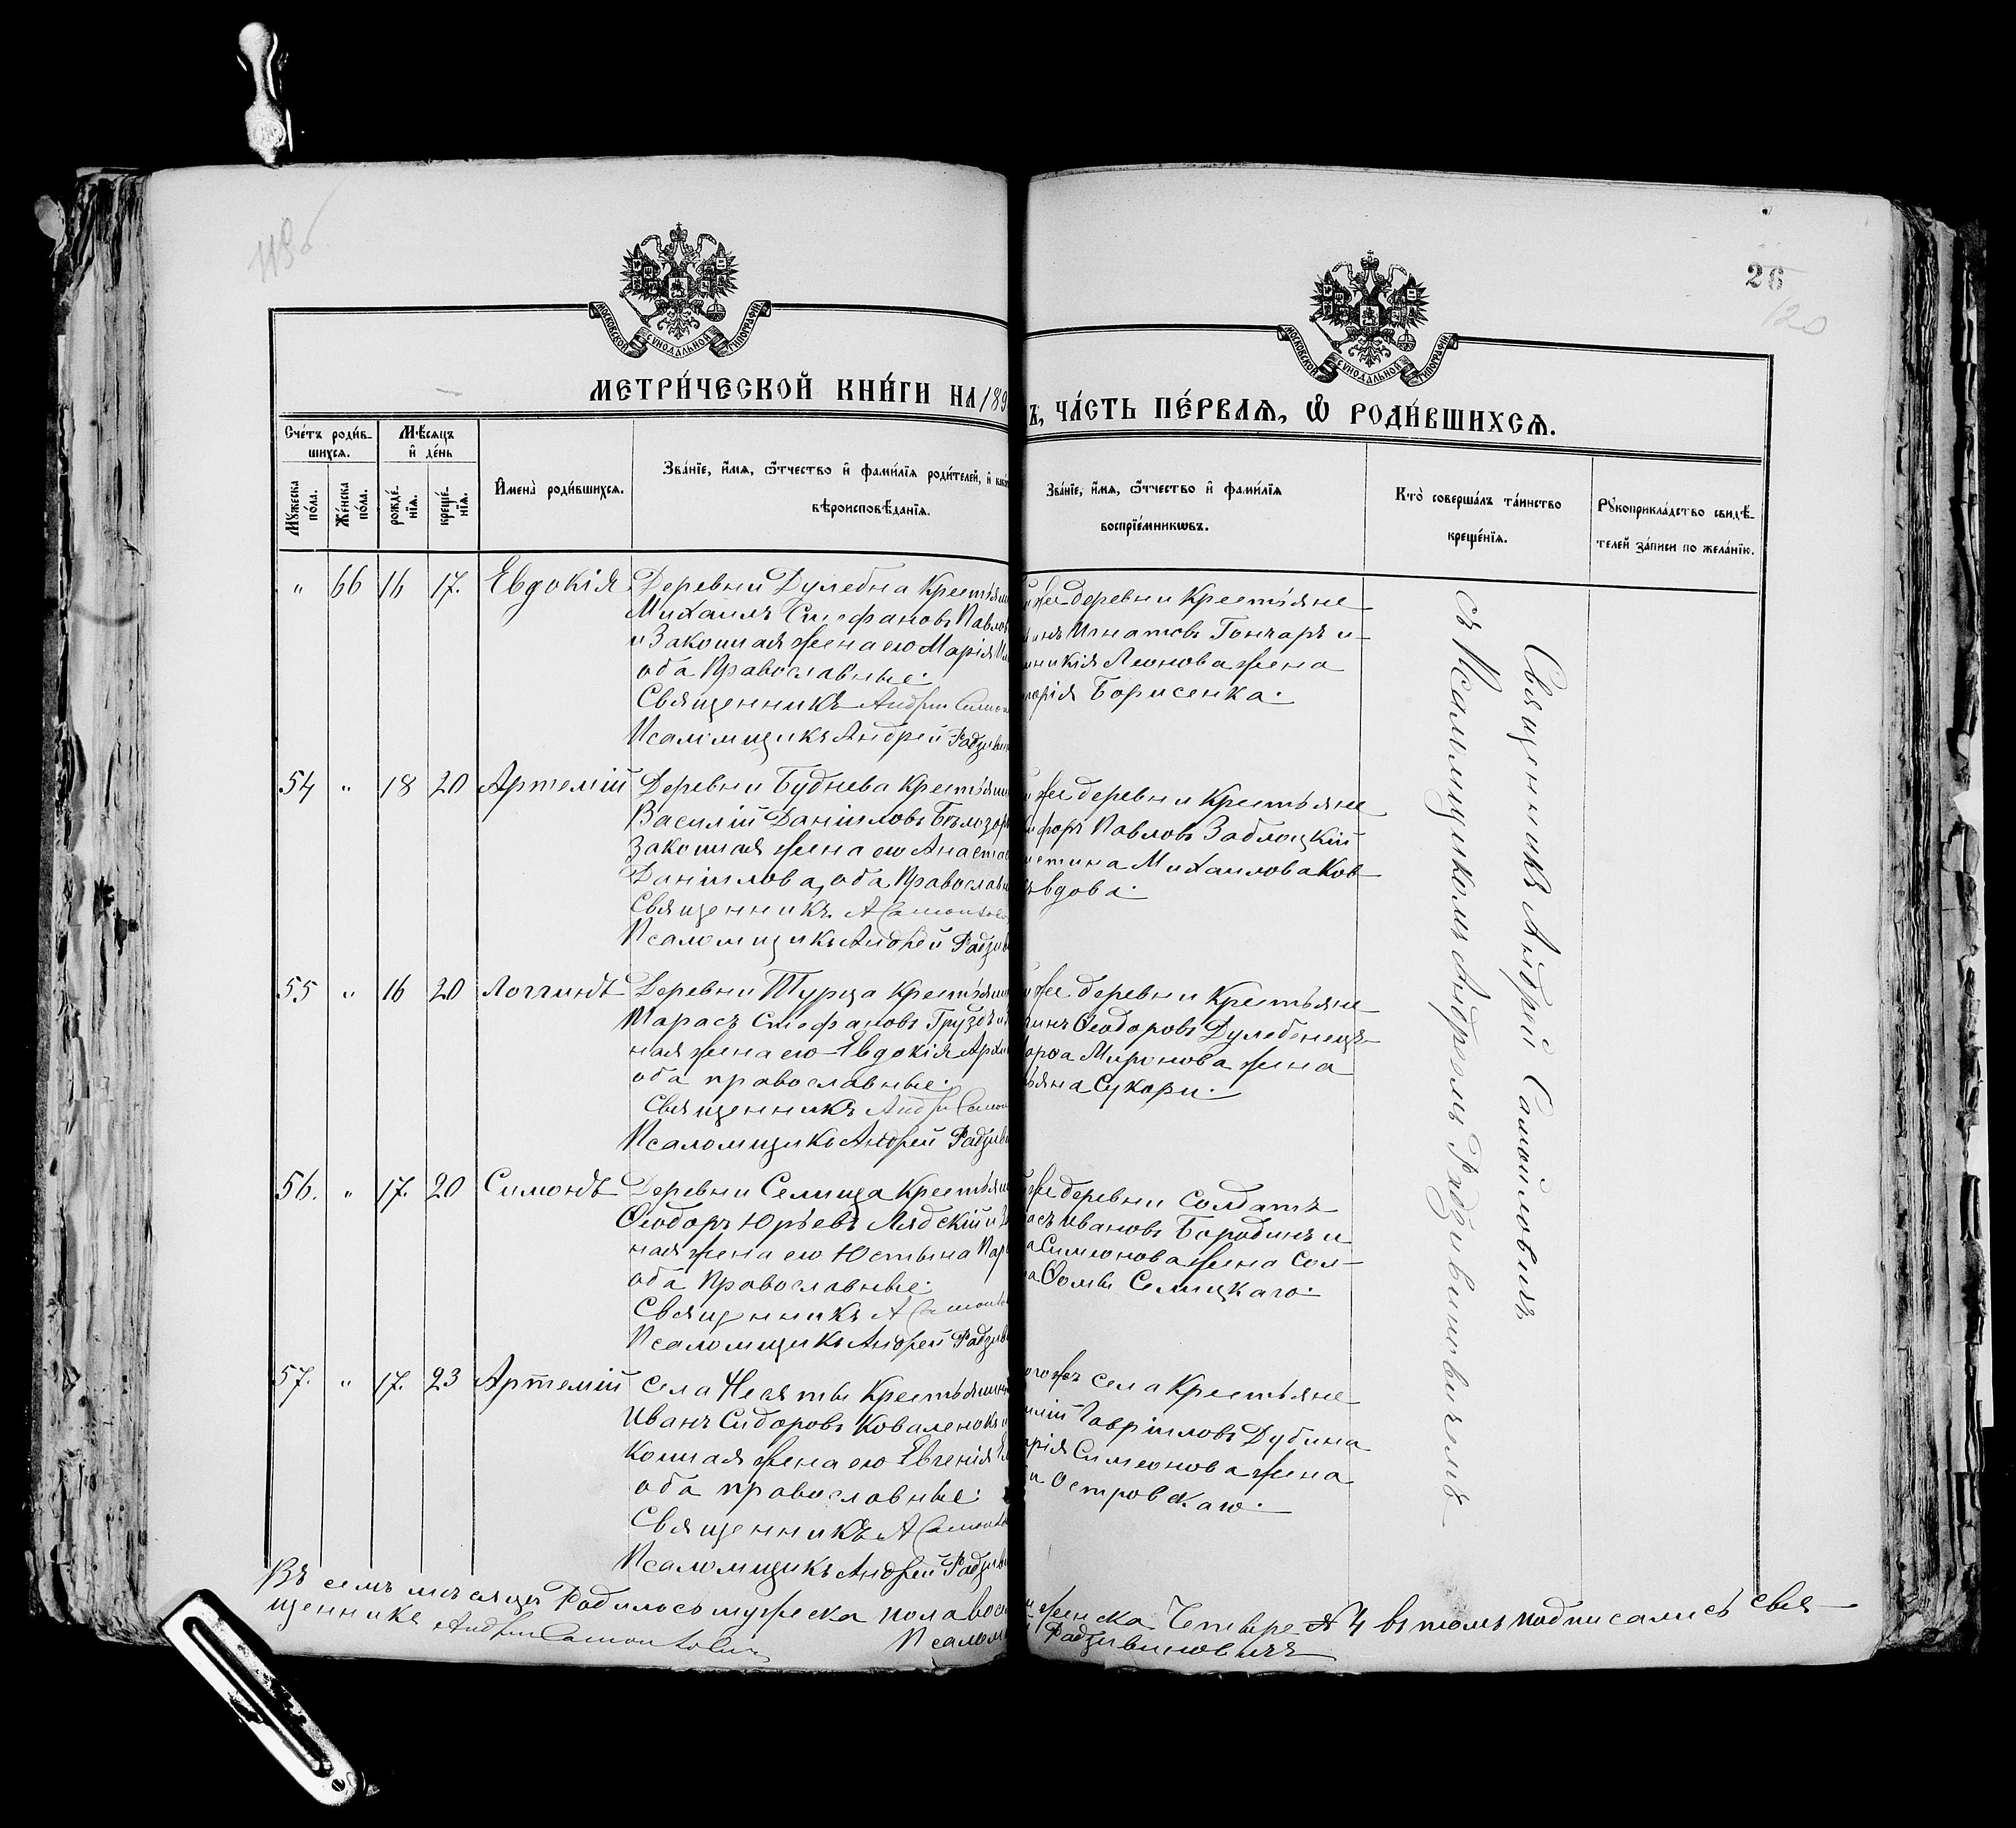 119 об
26
120
МОСКОВСКОЙ СѴНОДАЛЬНОЙ ТИПОГРАФІИ
МОСКОВСКОЙ СѴНОДАЛЬНОЙ ТИПОГРАФІИ
МЕТРИ́ЧЕСКОЙ КНИ́ГИ НА 189
Ъ, ЧА́СТЬ ПЕ́РВАЯ, Ѡ҆ РОДИ́ВШИХСЯ.
Сче́тъ роди́в-
шихся.
Мѣ́сяцъ
и҆ де́нь
Мꙋ́жеска
по́ла.
Же́нска
по́ла.
рожде́-
нїя.
креще́-
нїя.
И҆мена̀ роди́вшихся.
Зва́нїе, и҆́мя, ѻ҆́тчество и҆ фами́лїя роди́телей, и҆
вѣроисповѣ́данїя.
Зва́нїе, и҆́мя, ѻ҆́тчество и҆ фами́лїя
воспрїе́мникѡвъ.
Кто̀ соверша́лъ та́инство
креще́нїя.
Рꙋкоприкла́дство свидѣ́-
телей за́писи по жела́нїю.
" 66 16 17. Евдокія
Деревни Дулебна Крестьян
Михаилъ Стефановъ Павлов
и Законная жена его Марія
оба Православные.
Священникъ Андрей Самой
Псаломщикъ Андрей Радзиви
же деревни Крестьяне
Игнатовъ Гончаръ и
Леонова жена
Борисенка.
54 " 18 20 Артемій
Деревни Буднева Крестьян
Василій Даніиловъ Бѣлозор
Законная жена его Анаста
Даніилова, оба Православн
Священникъ. А Самойло
Псаломщикъ Андрей Радзив
же деревни Крестьяне
Павловъ Заблоцкій
Михаилова Ков
вдова.
55 " 16 20 Логгинъ
Деревни Турца Крестьян
Тарасъ Стефановъ Груздъ и
ная жена его Евдокія Архи
оба православные.
Священникъ Андрей Самой
Псаломщикъ Андрей Радзиви
же деревни Крестьяне
Ѳеодоровъ Дулебенецъ
Миронова жена
Сукори.
56. " 17. 20 Симонъ
Деревни Селища Крестьян
Ѳеодоръ Юрьевъ Лядскій и
ная жена его Юстына Пар
оба Православные.
Священникъ А Самойло
Псаломщикъ Андрей Радзив
же деревни Солдатъ
Ивановъ Бородинъ и
Симеонова жена Сол-
Ѳомы Селицкаго.
57. " 17. 23 Артемій
Села Несяты Крестьянин
Иванъ Сидоровъ Коваленокъ и
конная жена его Евгенія
оба православные.
Священникъ А Самойло
Псаломщикъ Андрей Радзив
огожъ села Крестьяне
Гавріиловъ Дубина
Симеонова жена
Островскаго.
Священникъ Андрей Самойловичъ
съ Псаломщикомъ Андреемъ Радзивиновичемъ
Въ семъ мѣсяцѣ Родилось мужеска пола
женска Четыре 4 въ томъ подписались Свя-
щенникъ Андрей Самойлович
Псалом
Радзивиновичъ